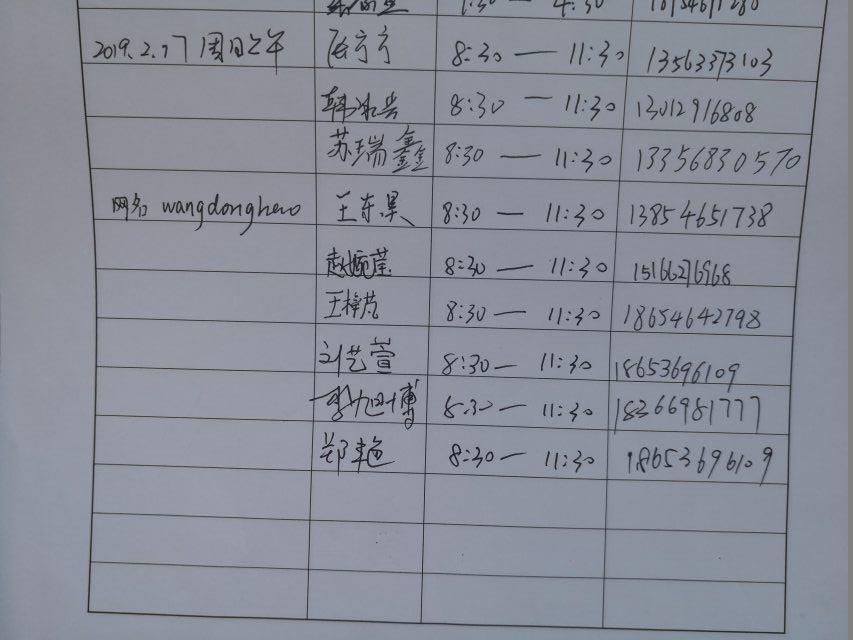 1:30 — 4:30
2019.2.17 周日上午 陈亨亨 8:30 — 11:30 13563373103
韩冰芸 8:30 — 11:30 13012916808
苏瑞鑫 8:30 — 11:30 13356830570
网名 wangdonghero 王东果 8:30 — 11:30 13854651738
赵婉莲 8:30 — 11:30 15166276968
王梓芃 8:30 — 11:30 18654642798
刘艺萱 8:30 — 11:30 18653696109
李旭博 8:30 — 11:30 18366981777
郑艳 8:30 — 11:30 18653696109